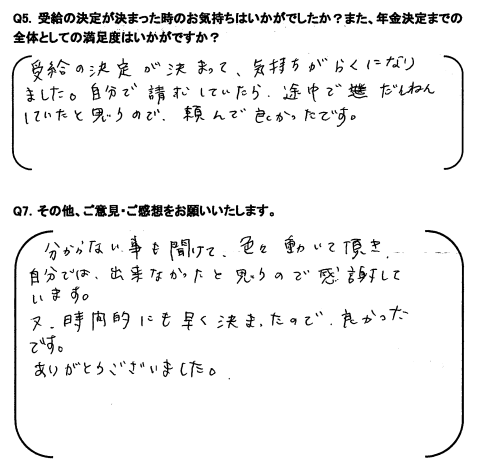 Q5. 受給の決定が決まった時のお気持ちはいかがでしたか？また、年金決定までの
全体としての満足度はいかがですか？
受給の決定が決まって、気持ちがらくになり
ました。自分で請求していたら、途中で だんねん
していたと思うので、頼んで良かったです。
Q7. その他、ご意見・ご感想をお願いいたします。
分からない事も聞けて、色々動いて頂き、
自分では、出来なかったと思うので感謝して
います。
又、時間的にも早く決まったので、良かった
です。
ありがとうございました。